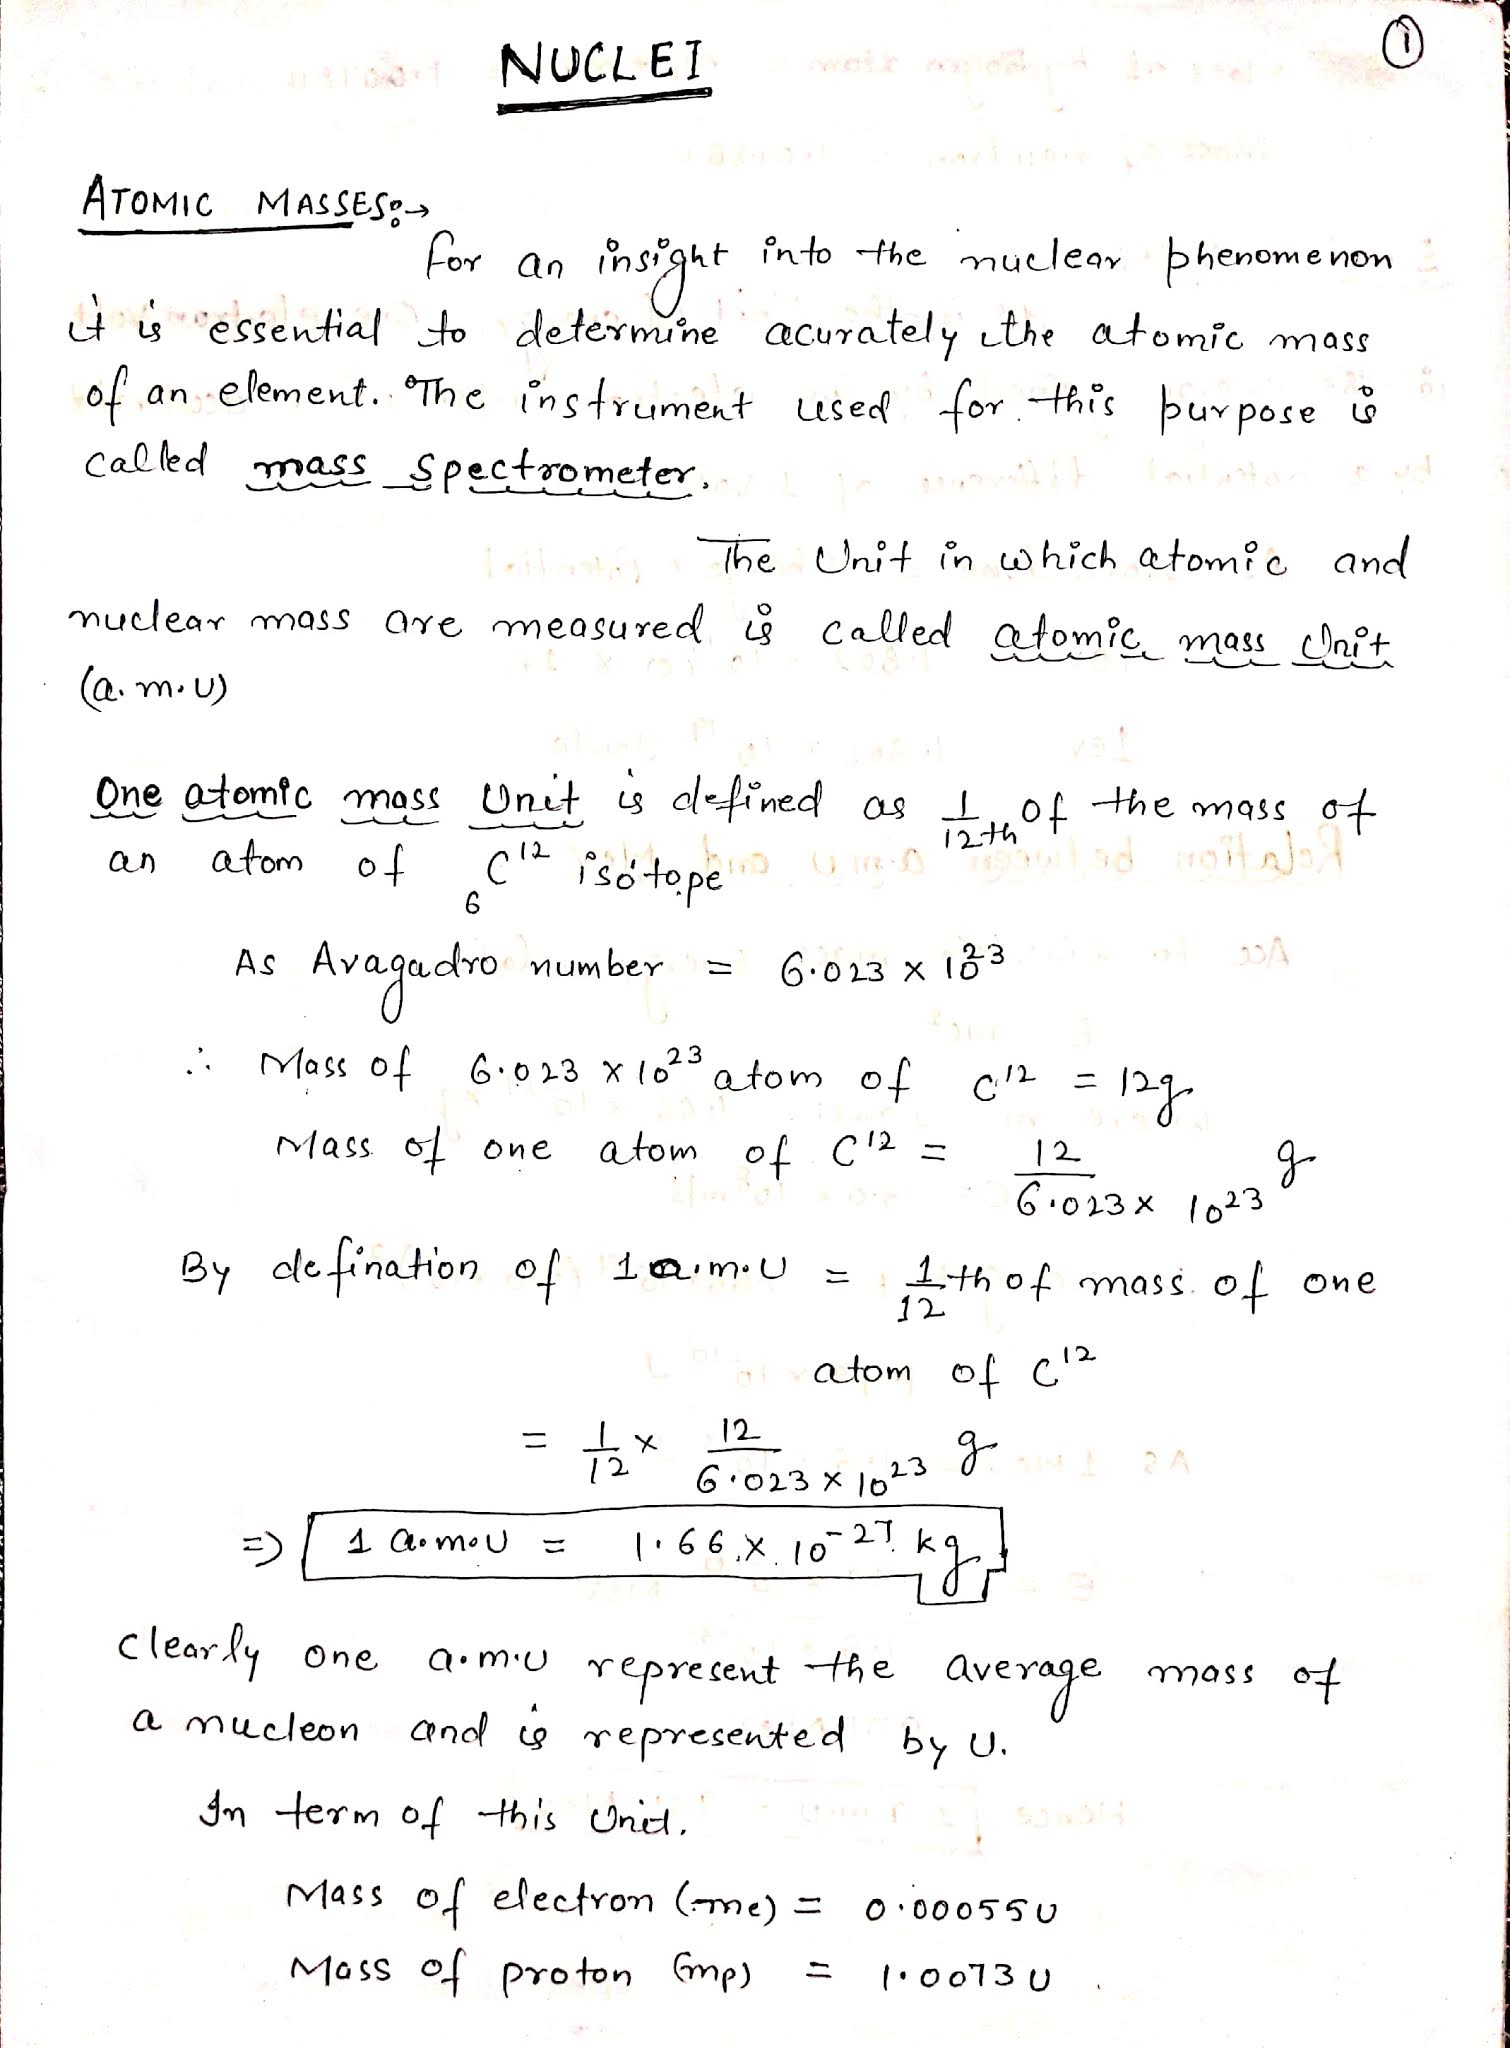 1
NUCLEI
ATOMIC MASSES:→
For an insight into the nuclear phenomenon
it is essential to determine acurately the atomic mass
of an element. The instrument used for this purpose is
called mass spectrometer.
The Unit in which atomic and
nuclear mass are measured is called atomic mass Unit
(a.m.U)
One atomic mass Unit is defined as 1/12th of the mass of
an atom of ₆C¹² isotope
As Avagadro number = 6.023 x 10²³
∴ Mass of 6.023 x 10²³ atom of C¹² = 12g
Mass of one atom of C¹² = 12/(6.023 x 10²³) g
By defination of 1 a.m.U = 1/12 th of mass of one
atom of C¹²
= 1/12 x 12/(6.023 x 10²³) g
=> 1 a.m.U = 1.66 x 10⁻²⁷ kg
clearly one a.m.U represent the average mass of
a nucleon and is represented by U.
In term of this Unit.
Mass of electron (me) = 0.00055U
Mass of proton (mp) = 1.0073U